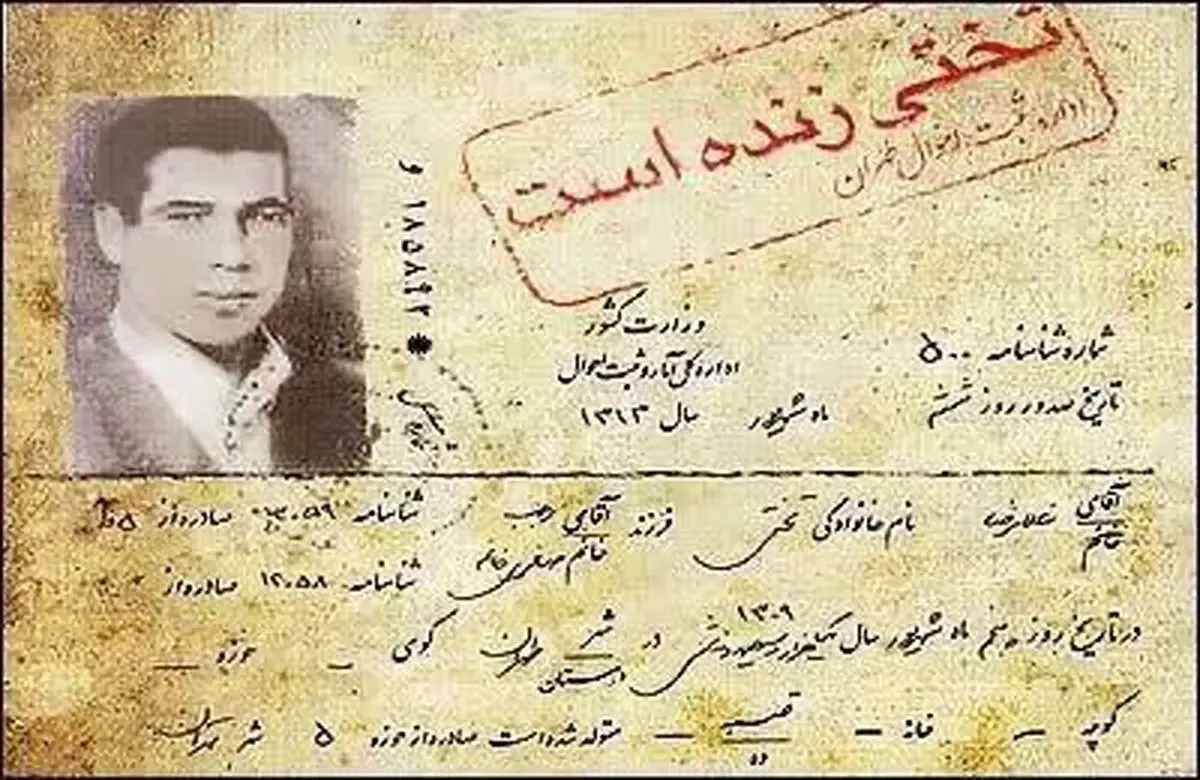 تختی زنده است
اداره ثبت احوال طهران
و ۱۸۵۸۴۲
وزارت کشور
اداره کل آمار و ثبت احوال
شماره شناسنامه ۵۰۰
تاریخ صدور روز ششم ماه شهریور سال ۱۳۱۳
آقای خانم غلامرضا نام خانوادگی تختی فرزند آقای رجب شناسنامه ۳۰۵۹ صادره از ۵
خانم شناسنامه ۱۲۰۵۸ صادره از
در تاریخ روز پنجم ماه شهریور سال ۱۳۰۹ یکهزار و سیصد و نه شمسی در شهر طهران کوی — حوزه —
دهستان
کوچه — خانه — قصبه — متولد شده است صادره از حوزه ۵ شهر طهران
ده